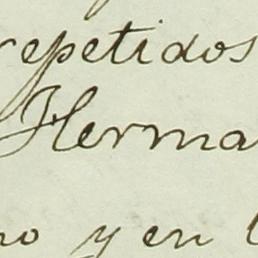 repetidos
Herma
no y en l